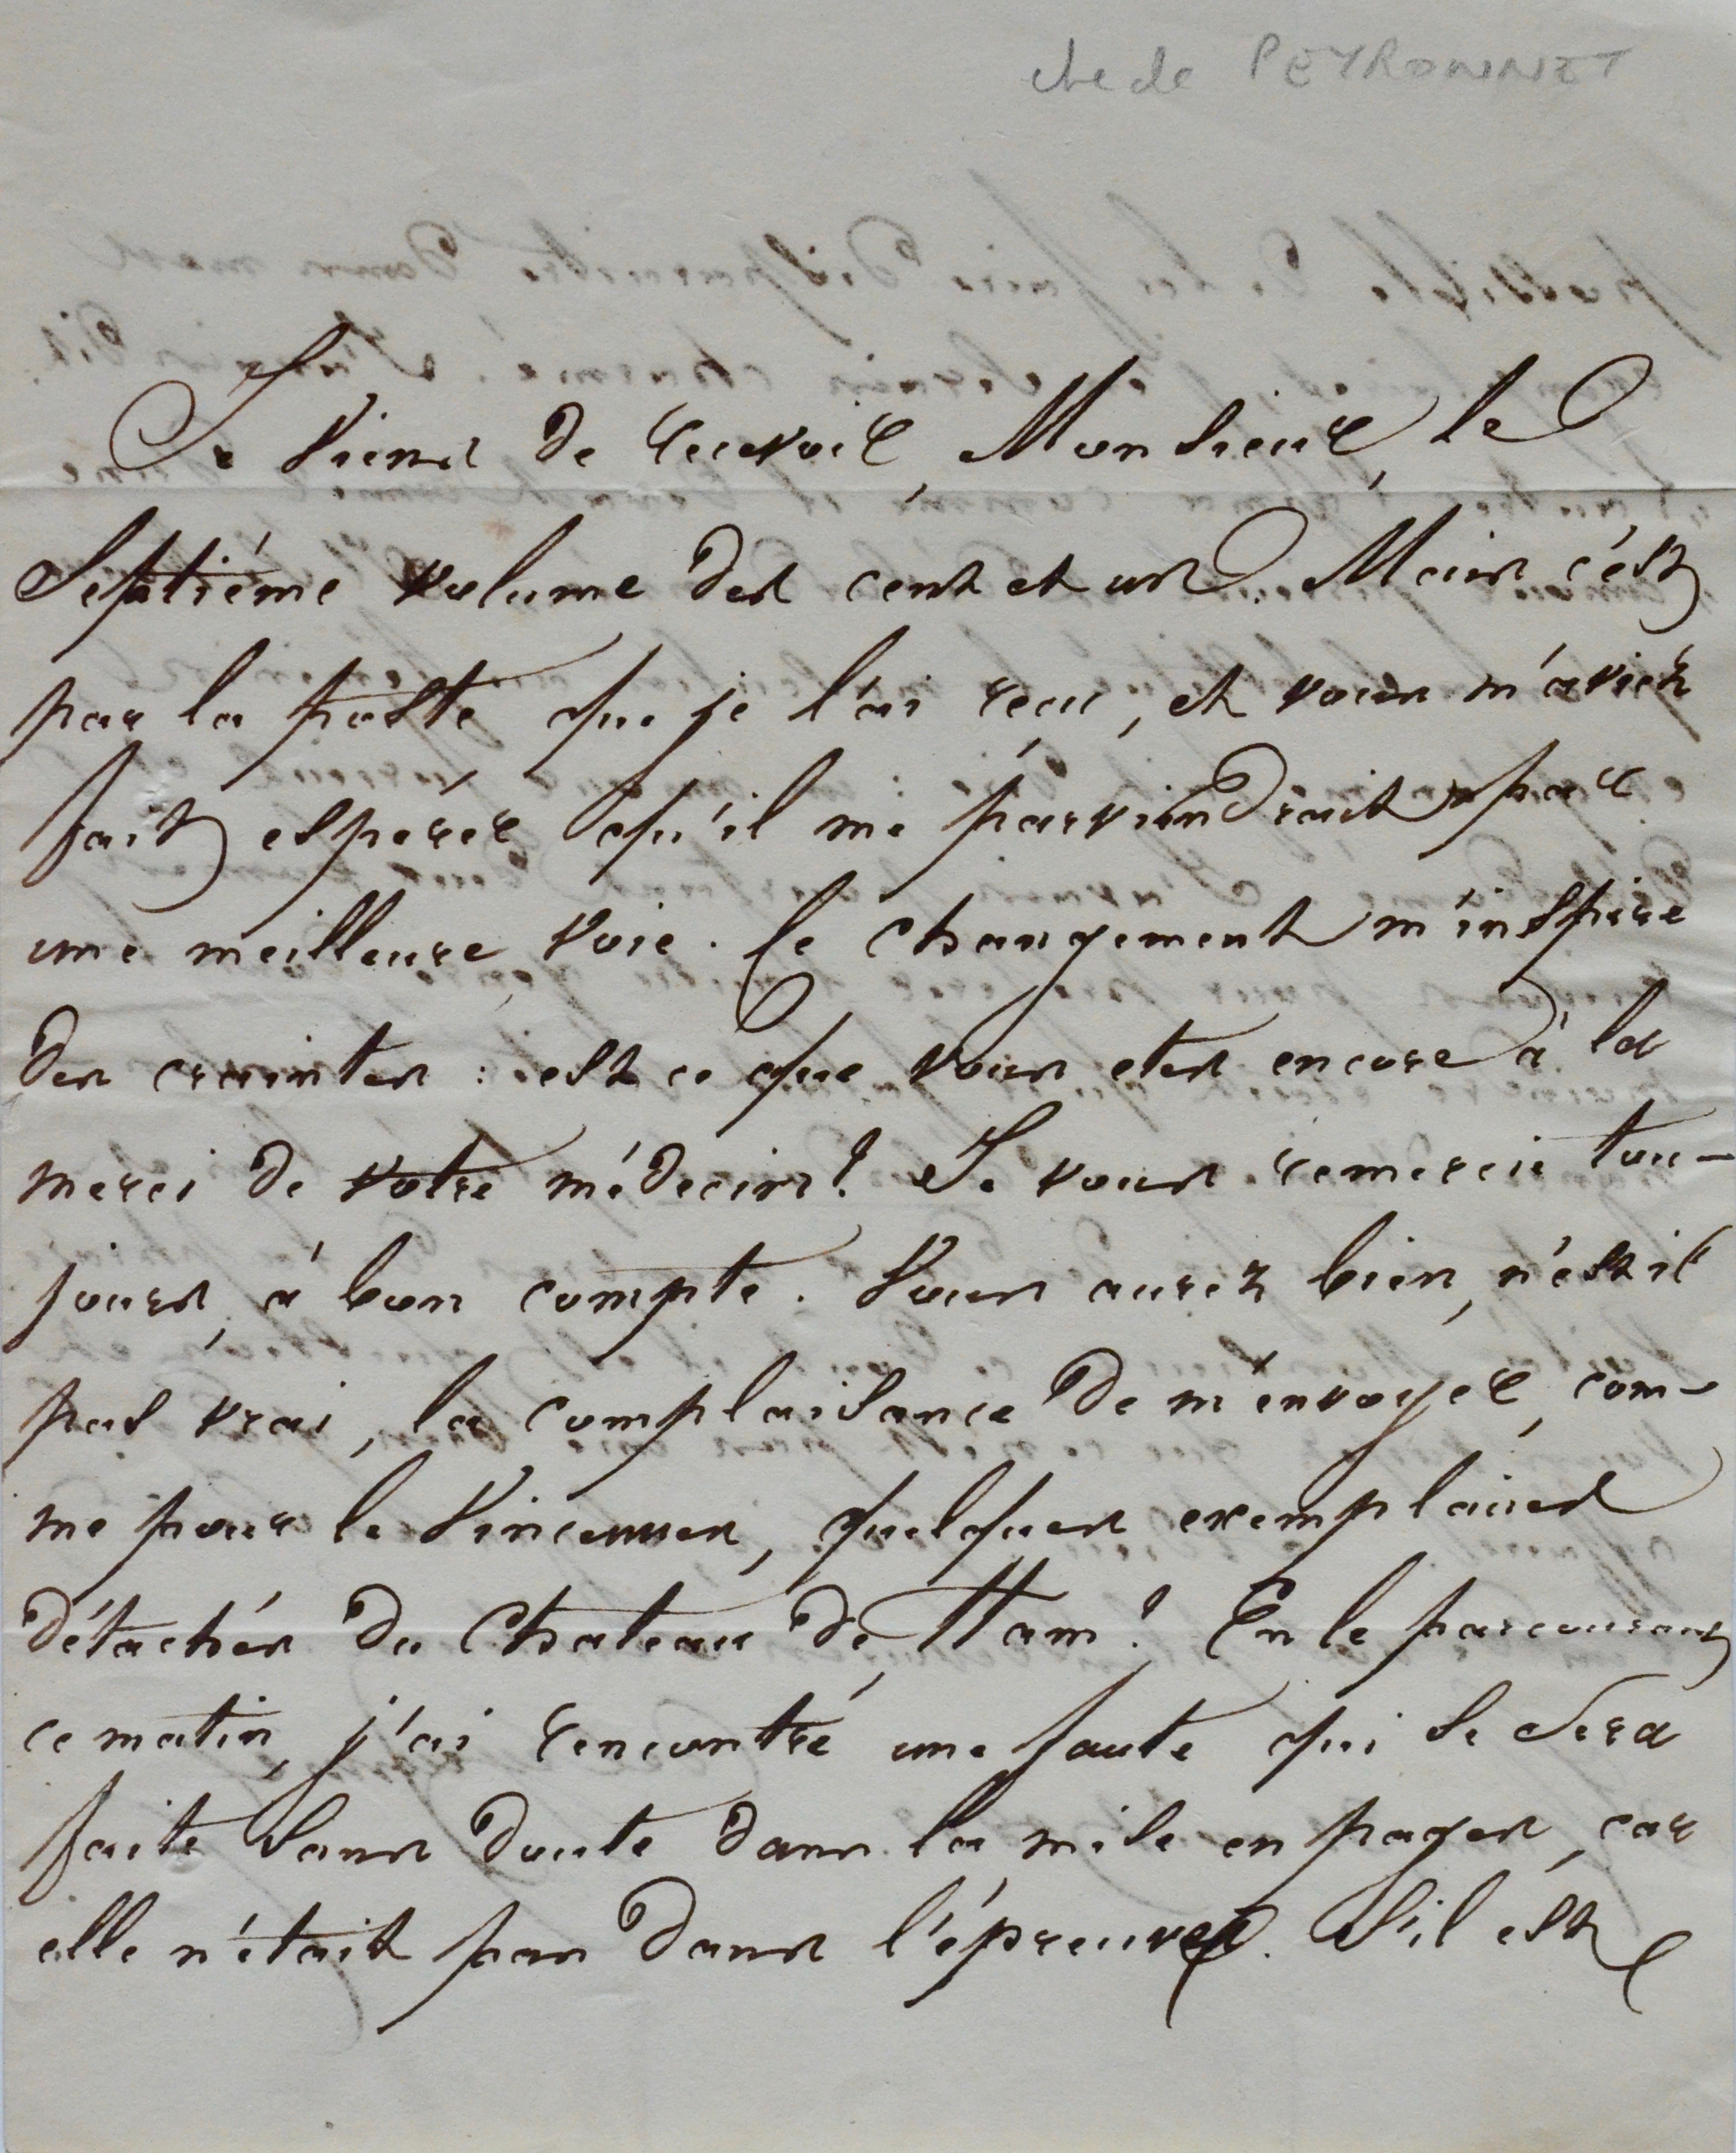 cte de PEYRONNET
Je viens de recevoir, Monsieur, le
Septiéme volume des cent et un. Mais c'est
par la poste que je l'ai reçu, et vous m'aviez
fait espérer qu'il me parviendrait par
une meilleure voie. Ce changement m'inspire
des craintes : est ce que vous etes encore à la
merci de votre médecin? Je vous remercie tou-
jours, à bon compte. Vous aurez bien, n'est il
pas vrai, la complaisance de m'envoyer, com-
me pour le Vincennes, quelques exemplaires
détachés du Chateau de Ham? En le parcourant
ce matin, j'ai rencontré une faute qui se sera
faite sans doute dans la mise en pages, car
elle n'était pas dans l'épreuve. S'il est